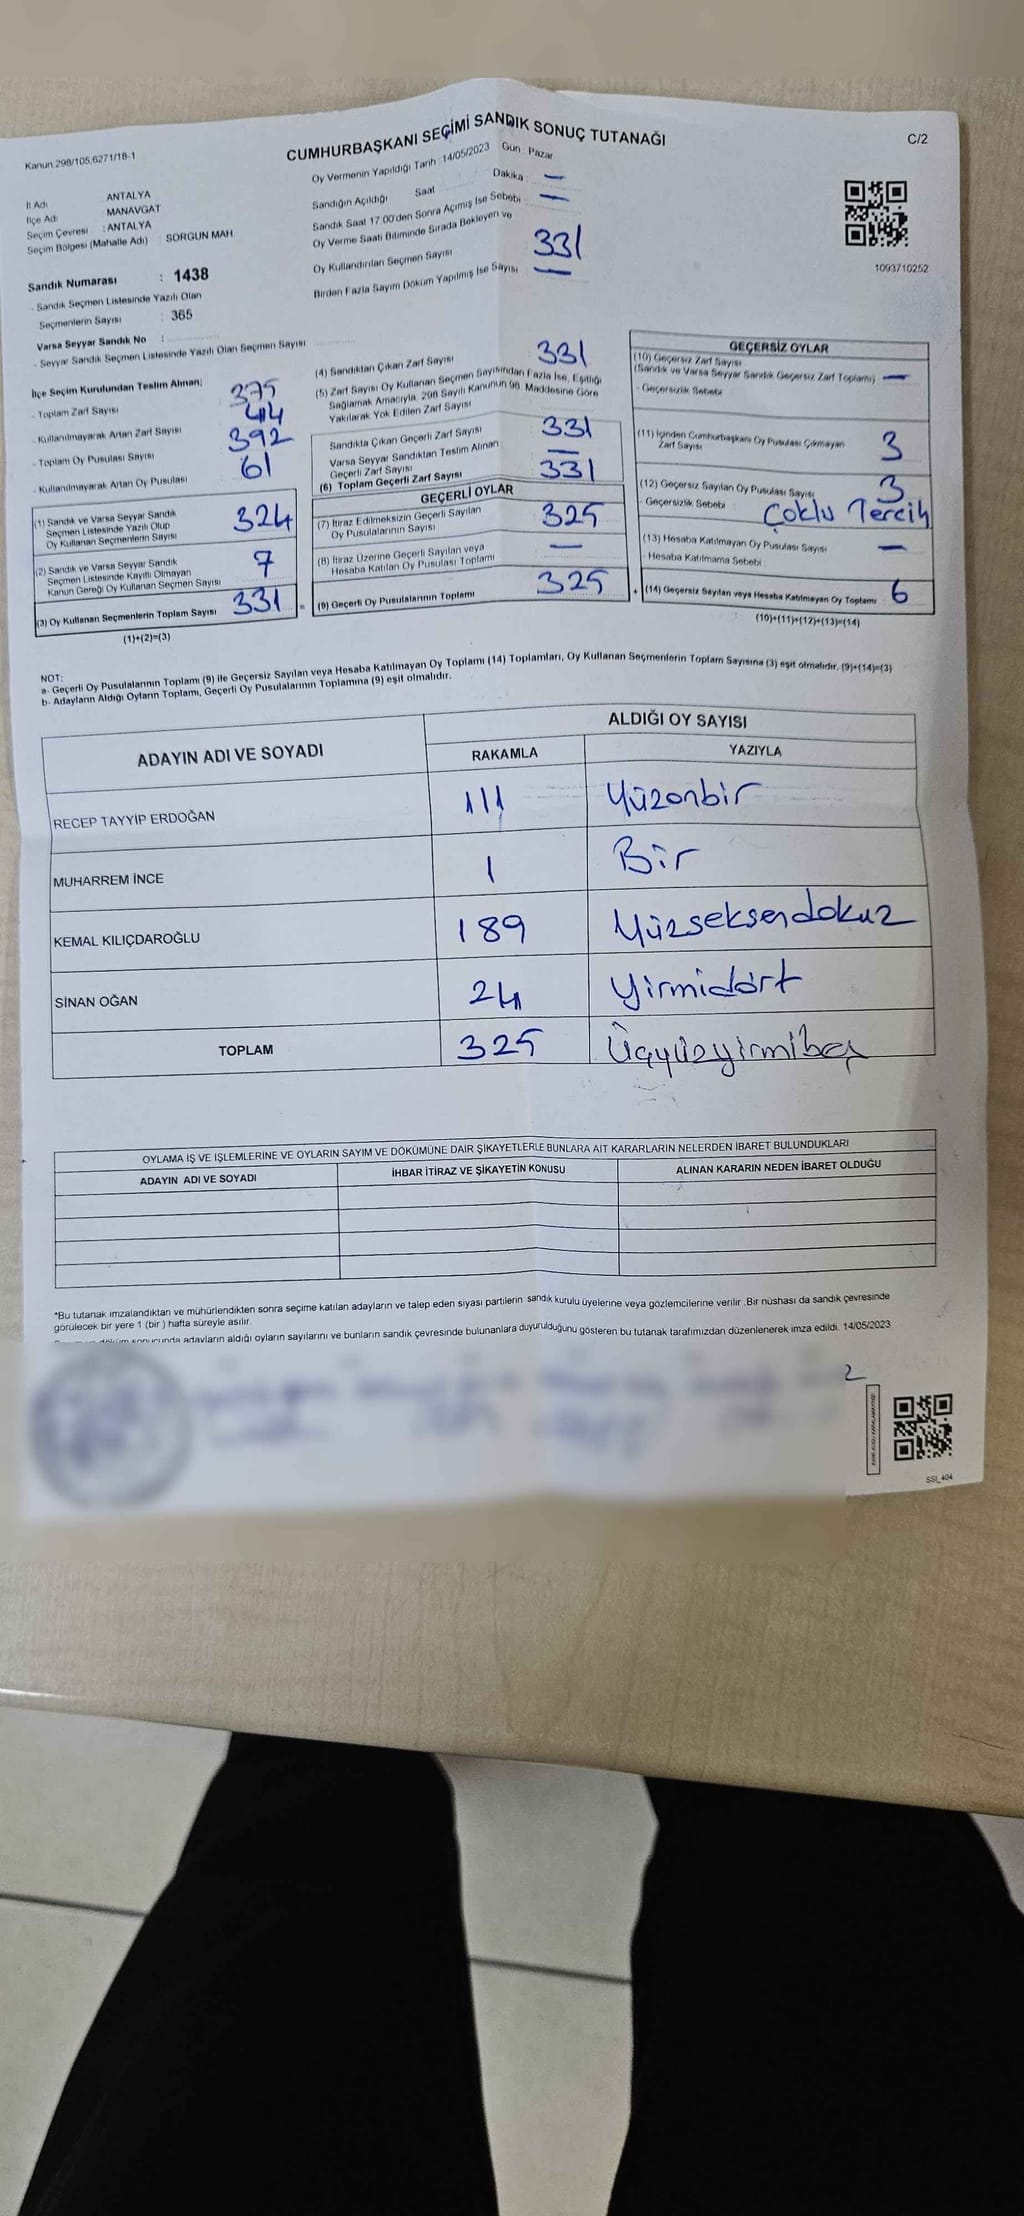 CUMHURBAŞKANI SEÇİMİ SANDIK SONUÇ TUTANAĞI
C/2
Kanun:298/105,6271/18-1
İl Adı : ANTALYA
İlçe Adı : MANAVGAT
Seçim Çevresi : ANTALYA
Seçim Bölgesi (Mahalle Adı) : SORGUN MAH.
Sandık Numarası : 1438
- Sandık Seçmen Listesinde Yazılı Olan
Seçmenlerin Sayısı : 365
Varsa Seyyar Sandık No :
- Seyyar Sandık Seçmen Listesinde Yazılı Olan Seçmen Sayısı
Oy Vermenin Yapıldığı Tarih : 14/05/2023 Gün : Pazar
Sandığın Açıldığı Saat Dakika : —
Sandık Saat 17:00'den Sonra Açımış İse Sebebi : —
Oy Verme Saati Bitiminde Sırada Bekleyen ve
Oy Kullandırılan Seçmen Sayısı 331
Birden Fazla Sayım Döküm Yapılmış İse Sayısı —
1093710252
İlçe Seçim Kurulundan Teslim Alınan;
- Toplam Zarf Sayısı 375
- Kullanılmayarak Artan Zarf Sayısı 44
- Toplam Oy Pusulası Sayısı 392
- Kullanılmayarak Artan Oy Pusulası 61
(1) Sandık ve Varsa Seyyar Sandık
Seçmen Listesinde Yazılı Olup
Oy Kullanan Seçmenlerin Sayısı 324
(2) Sandık ve Varsa Seyyar Sandık
Seçmen Listesinde Kayıtlı Olmayan
Kanun Gereği Oy Kullanan Seçmen Sayısı 7
(3) Oy Kullanan Seçmenlerin Toplam Sayısı 331 =
(1)+(2)=(3)
(4) Sandıktan Çıkan Zarf Sayısı 331
(5) Zarf Sayısı Oy Kullanan Seçmen Sayısından Fazla İse, Eşitliği
Sağlamak Amacıyla, 298 Sayılı Kanunun 98. Maddesine Göre
Yakılarak Yok Edilen Zarf Sayısı
Sandıkta Çıkan Geçerli Zarf Sayısı 331
Varsa Seyyar Sandıktan Teslim Alınan
Geçerli Zarf Sayısı —
(6) Toplam Geçerli Zarf Sayısı 331
GEÇERLİ OYLAR
(7) İtiraz Edilmeksizin Geçerli Sayılan
Oy Pusulalarının Sayısı 325
(8) İtiraz Üzerine Geçerli Sayılan veya
Hesaba Katılan Oy Pusulası Toplamı —
(9) Geçerli Oy Pusulalarının Toplamı 325 +
GEÇERSİZ OYLAR
(10) Geçersiz Zarf Sayısı
(Sandık ve Varsa Seyyar Sandık Geçersiz Zarf Toplamı) —
- Geçersizlik Sebebi
(11) İçinden Cumhurbaşkanı Oy Pusulası Çıkmayan
Zarf Sayısı 3
(12) Geçersiz Sayılan Oy Pusulası Sayısı 3
- Geçersizlik Sebebi : Çoklu Tercih
(13) Hesaba Katılmayan Oy Pusulası Sayısı —
- Hesaba Katılmama Sebebi :
(14) Geçersiz Sayılan veya Hesaba Katılmayan Oy Toplamı : 6
(10)+(11)+(12)+(13)=(14)
NOT:
a- Geçerli Oy Pusulalarının Toplamı (9) ile Geçersiz Sayılan veya Hesaba Katılmayan Oy Toplamı (14) Toplamları, Oy Kullanan Seçmenlerin Toplam Sayısına (3) eşit olmalıdır. (9)+(14)=(3)
b- Adayların Aldığı Oyların Toplamı, Geçerli Oy Pusulalarının Toplamına (9) eşit olmalıdır.
ADAYIN ADI VE SOYADI
ALDIĞI OY SAYISI
RAKAMLA YAZIYLA
RECEP TAYYİP ERDOĞAN 111 Yüzonbir
MUHARREM İNCE 1 Bir
KEMAL KILIÇDAROĞLU 189 Yüzseksendokuz
SİNAN OĞAN 24 Yirmidört
TOPLAM 325 Üçyüzyirmibeş
OYLAMA İŞ VE İŞLEMLERİNE VE OYLARIN SAYIM VE DÖKÜMÜNE DAİR ŞİKAYETLERLE BUNLARA AİT KARARLARIN NELERDEN İBARET BULUNDUKLARI
ADAYIN ADI VE SOYADI İHBAR İTİRAZ VE ŞİKAYETİN KONUSU ALINAN KARARIN NEDEN İBARET OLDUĞU
*Bu tutanak imzalandıktan ve mühürlendikten sonra seçime katılan adayların ve talep eden siyasi partilerin sandık kurulu üyelerine veya gözlemcilerine verilir .Bir nüshası da sandık çevresinde
görülecek bir yere 1 (bir ) hafta süreyle asılır.
sonucunda adayların aldığı oyların sayılarını ve bunların sandık çevresinde bulunanlara duyurulduğunu gösteren bu tutanak tarafımızdan düzenlenerek imza edildi. 14/05/2023
2
SSI_404